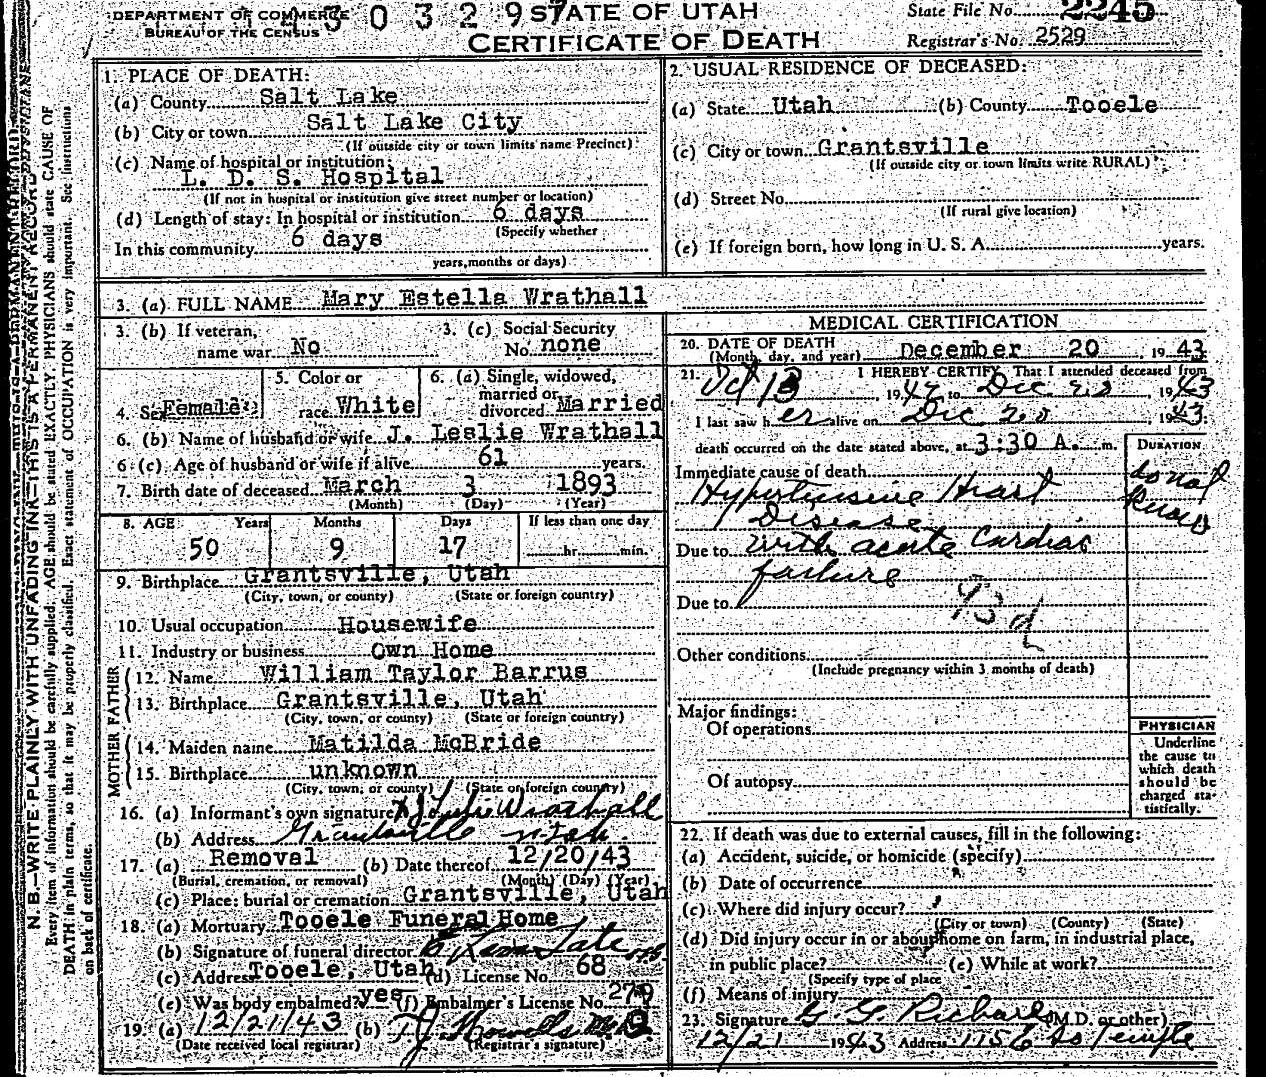 DEPARTMENT OF COMMERCE
BUREAU OF THE CENSUS
3 0 3 2 9 7
STATE OF UTAH
CERTIFICATE OF DEATH
State File No. 2245
Registrar's No. 2529
1. PLACE OF DEATH:
(a) County Salt Lake
(b) City or town Salt Lake City
(If outside city or town limits name Precinct)
(c) Name of hospital or institution:
L. D. S. Hospital
(If not in hospital or institution give street number or location)
(d) Length of stay: In hospital or institution 6 days
(Specify whether
In this community 6 days
years, months or days)
2. USUAL RESIDENCE OF DECEASED:
(a) State Utah (b) County Tooele
(c) City or town Grantsville
(If outside city or town limits write RURAL)
(d) Street No.
(If rural give location)
(e) If foreign born, how long in U. S. A. years.
3. (a) FULL NAME Mary Estella Wrathall
3. (b) If veteran, name war No
3. (c) Social Security No. none
4. Sex Female
5. Color or race White
6. (a) Single, widowed, married or divorced Married
6. (b) Name of husband or wife J. Leslie Wrathall
6. (c) Age of husband or wife if alive 61 years.
7. Birth date of deceased March 3 1893
(Month) (Day) (Year)
8. AGE Years Months Days If less than one day
50 9 17 hr. min.
9. Birthplace Grantsville, Utah
(City, town, or county) (State or foreign country)
10. Usual occupation Housewife
11. Industry or business Own Home
FATHER
12. Name William Taylor Barrus
13. Birthplace Grantsville, Utah
(City, town, or county) (State or foreign country)
MOTHER
14. Maiden name Matilda McBride
15. Birthplace unknown
(City, town, or county) (State or foreign country)
16. (a) Informant's own signature J Leslie Wrathall
(b) Address Grantsville Utah.
17. (a) Removal (b) Date thereof 12/20/43
(Burial, cremation, or removal) (Month) (Day) (Year)
(c) Place: burial or cremation Grantsville, Utah
18. (a) Mortuary Tooele Funeral Home
(b) Signature of funeral director Tate
(c) Address Tooele, Utah (d) License No. 68
(e) Was body embalmed? yes (f) Embalmer's License No. 279
19. (a) 12/21/43 (b) T.J. Howells M.D.
(Date received local registrar) (Registrar's signature)
MEDICAL CERTIFICATION
20. DATE OF DEATH
(Month, day, and year) December 20, 1943
21. I HEREBY CERTIFY, That I attended deceased from
Oct 13, 1942 to Dec 20, 1943
I last saw her alive on Dec 20, 1943.
death occurred on the date stated above, at 3:30 A. m.
DURATION
Immediate cause of death
Hypertensive Heart
Disease
Due to with acute Cardiac
failure
Due to
93d
Other conditions
(Include pregnancy within 3 months of death)
Major findings:
Of operations
Of autopsy
PHYSICIAN
Underline
the cause to
which death
should be
charged sta-
tistically.
22. If death was due to external causes, fill in the following:
(a) Accident, suicide, or homicide (specify)
(b) Date of occurrence
(c) Where did injury occur?
(City or town) (County) (State)
(d) Did injury occur in or about home on farm, in industrial place,
in public place? (e) While at work?
(Specify type of place
(f) Means of injury
23. Signature G. G. Richards (M.D. or other)
12/21 1943 Address 1156 So Temple
N. B.—WRITE PLAINLY WITH UNFADING INK—THIS IS A PERMANENT RECORD
Every item of information should be carefully supplied. AGE should be stated EXACTLY. PHYSICIANS should state CAUSE OF
DEATH in plain terms, so that it may be properly classified. Exact statement of OCCUPATION is very important. See instructions
on back of certificate.